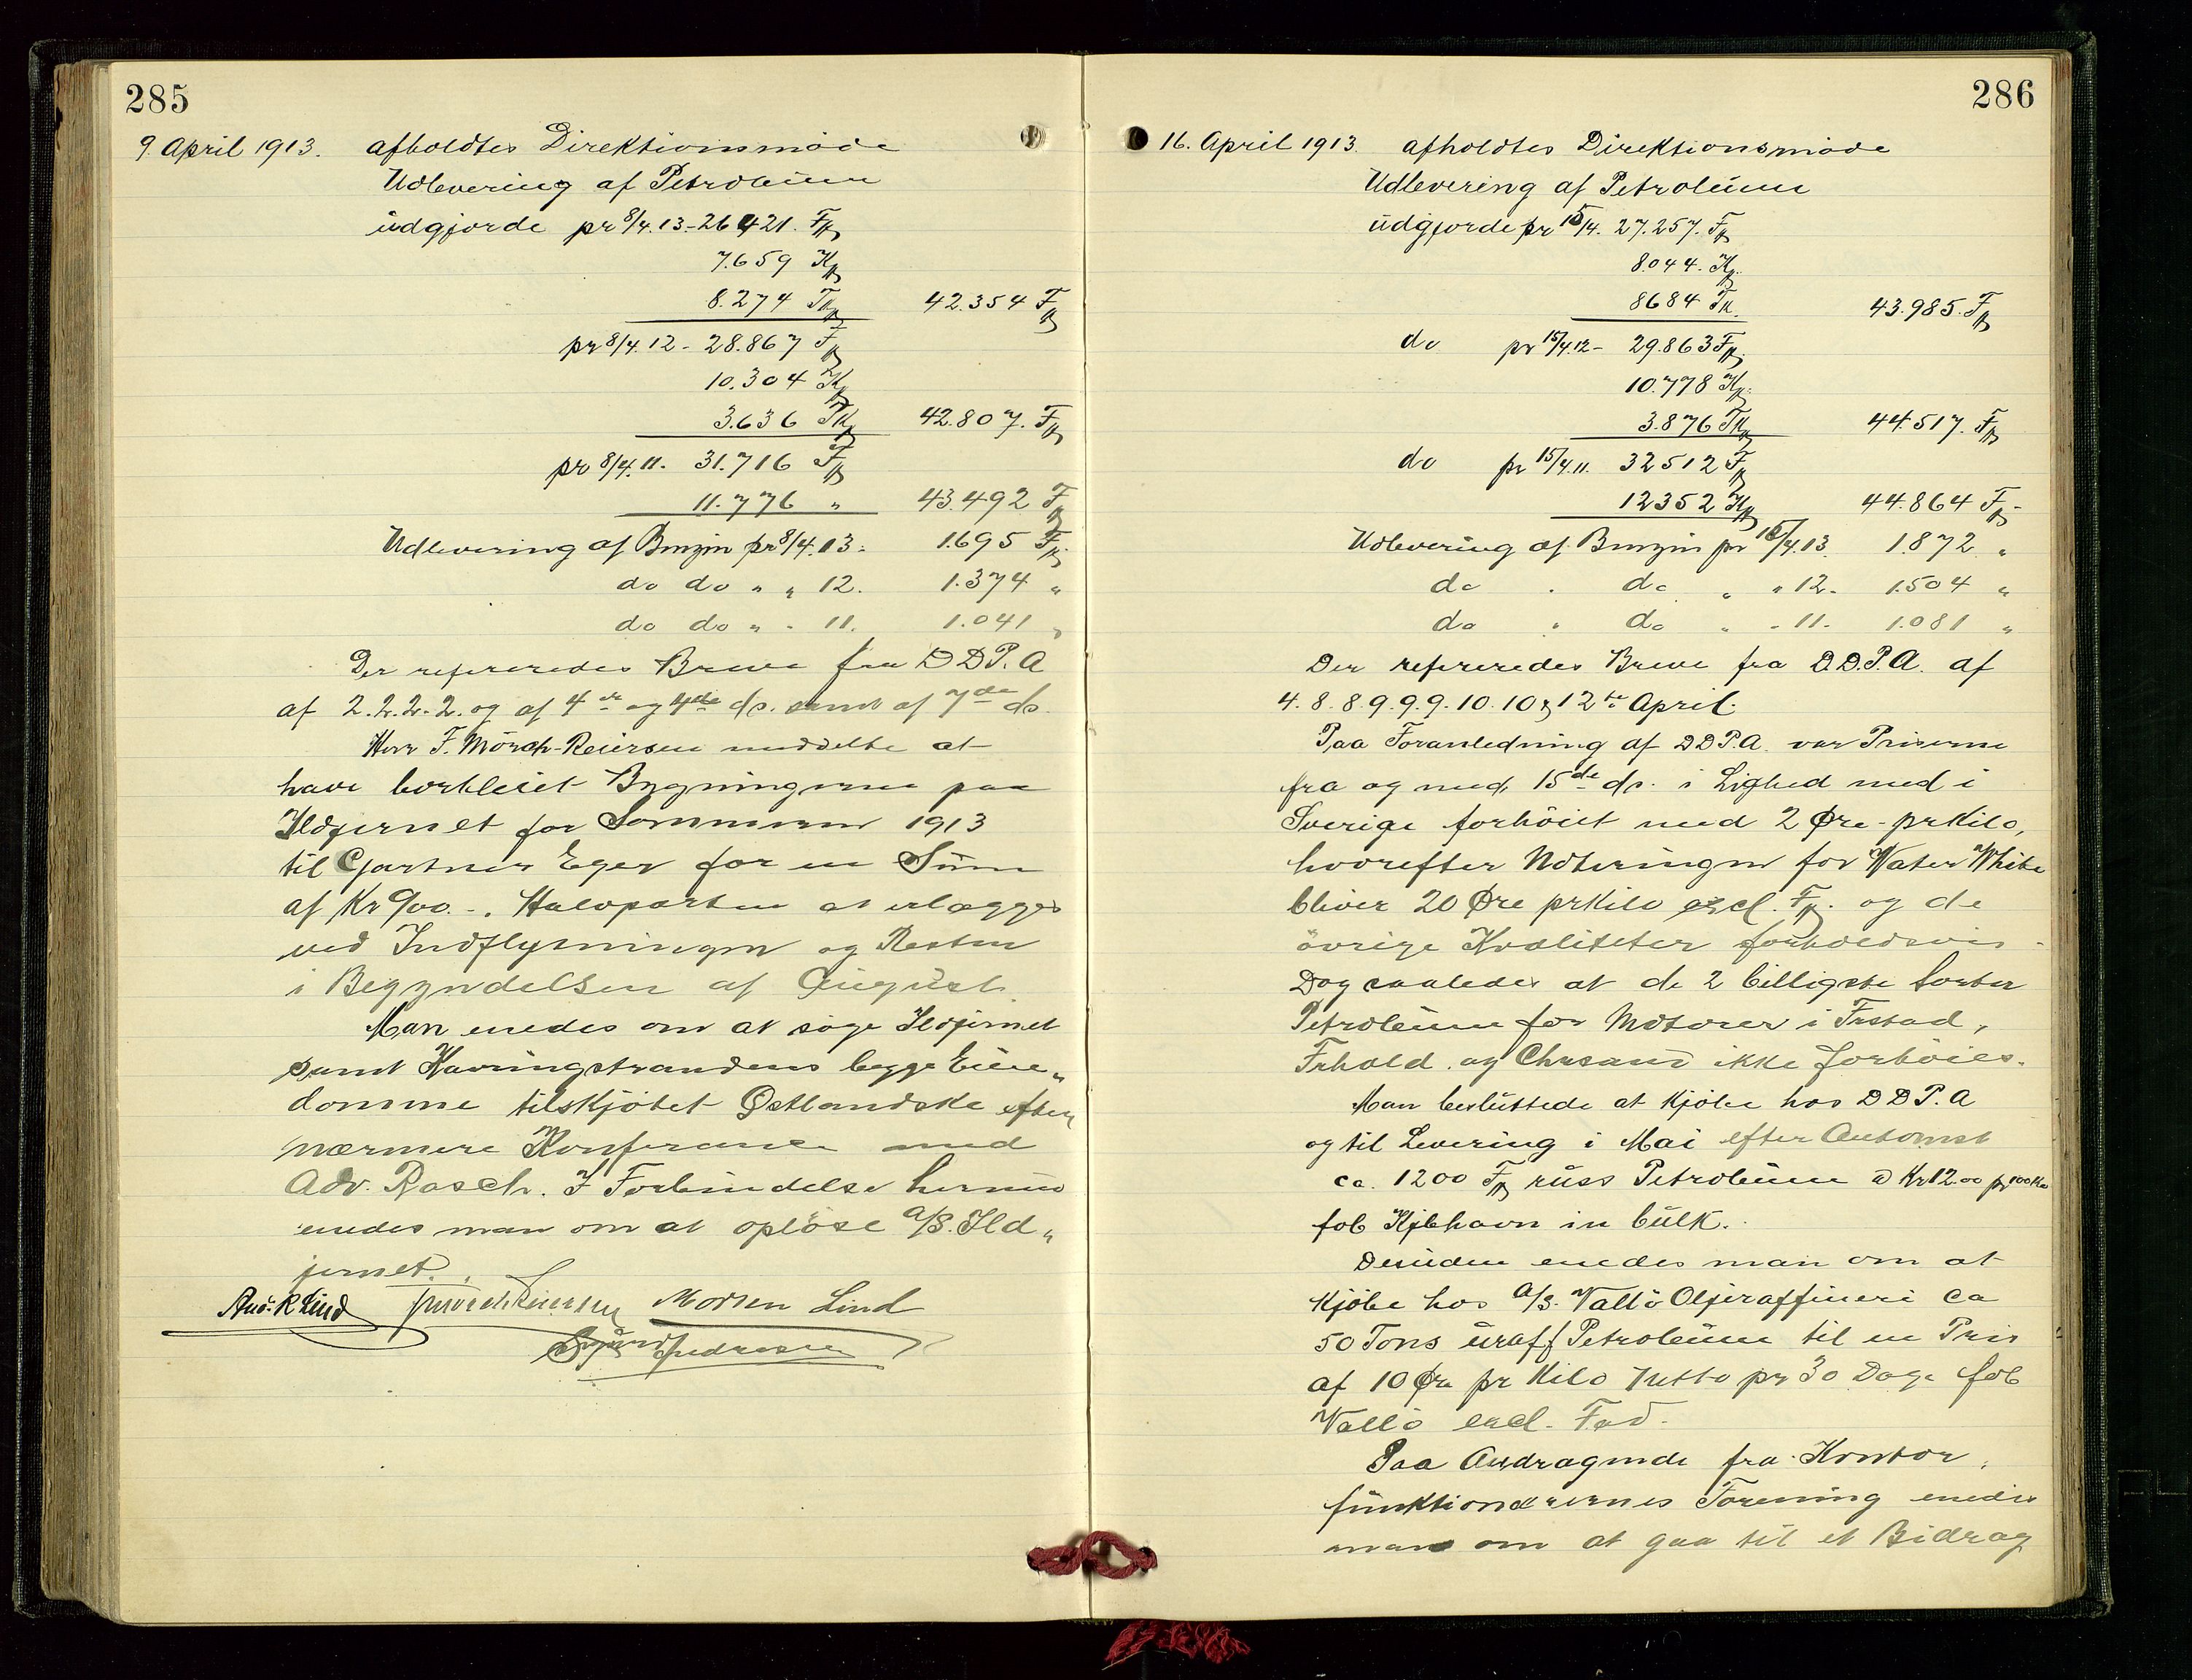 285
9. April 1913. afholdtes Direktionsmøde
Udlevering af Petroleum
udgjorde pr 8/4.13 - 26421. F
7.659 K
8.274 TK 42.354 F
pr 8/4.12 - 28.867 F
10.304 K
3.636 TK 42.807. F
pr 8/4.11. 31.716 F
11.776 " 43.492 F
Udlevering af Benzin pr 8/4.13. 1.695 F
do do " " 12. 1.374 "
do do " " 11. 1.041 "
Der refereredes Breve fra D D P. A
af 2.2.2.2. og af 4de og 4de ds. samt af 7de ds.
Herr F. Mörch-Reiersen meddelte at
have bortleiet Bygningerne paa
Ildjernet for Sommeren 1913
til Gartner Eger for en Sum
af Kr 900.-. Halvparten at erlægges
ved Indflytningen og Resten
i Begyndelsen af August.
Man enedes om at søge Ildjernet
samt Kavringstrandens begge Eien„
domme tilskjøtet Østlandske efter
nærmere Konferanse med
Adv. Rasch. I Forbindelse hermed
enedes man om at opløse A/S. Ild„
jernet.
And. R Lind FMörchReiersen Morten Lind
Sigurd Pedersen
286
16. April 1913. afholdtes Direktionsmøde
Udlevering af Petroleum
udgjorde pr 15/4. 27.257. F
8.044. K
8684 TK. 43.985. F
do pr 15/4.12 - 29.863 F
10.778 K
3.876 TK 44.517. F
do pr 15/4.11. 32512 F
12352 K 44.864 F
Udlevering af Benzin pr 15/4.13. 1872 "
do " do " " 12. 1.504 "
do " do " " 11. 1.081 "
Der refereredes Breve fra D.D.P.A. af
4. 8. 8. 9. 9. 9. 10. 10 & 12te April.
Paa Foranledning af D D P.A. var Priserne
fra og med 15de ds. i Lighed med i
Sverige forhöiet med 2 Øre pr Kilo,
hvorefter Noteringen for Water White
bliver 20 Øre pr Kilo excl. F. og de
övrige Kvaliteter forholdsvis -
Dog saaledes at de 2 billigste Sorter
Petroleum for Motorer i Frstad,
Frhald. og Chrsand ikke forhöies.
Man besluttede at kjöbe hos D D P. A
og til Levering i Mai efter Automat
ca. 1200 F russ Petroleum a Kr 12.00 pr 100 Ko
fob Kjbhavn in bulk.
Desuden enedes man om at
kjöbe hos A/S. Vallö Oljeraffineri ca
50 Tons uraff Petroleum til en Pris
af 10 Øre pr Kilo netto pr 30 Dage fob
Vallö excl. Fad.
Paa Andragende fra Kontor„
funktionærernes Forening enedes
man om at gaa til et Bidrag